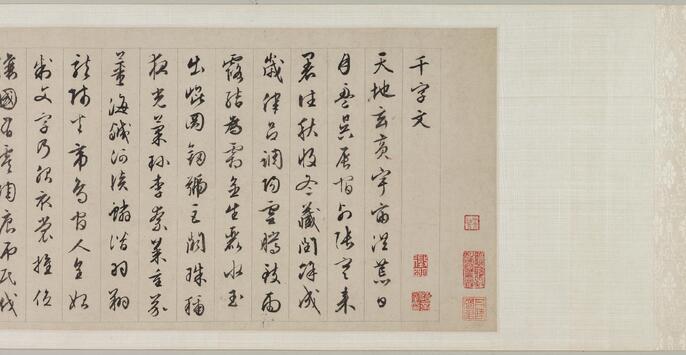 千字文
天地玄黃宇宙洪荒日
月盈昃辰宿列張寒來
暑往秋收冬藏閏餘成
歲律呂調陽雲騰致雨
露結為霜金生麗水玉
出崑岡劍號巨闕珠稱
夜光菓珍李柰菜重芥
薑海鹹河淡鱗潛羽翔
龍師火帝鳥官人皇始
制文字乃服衣裳推位
讓國有虞陶唐弔民伐